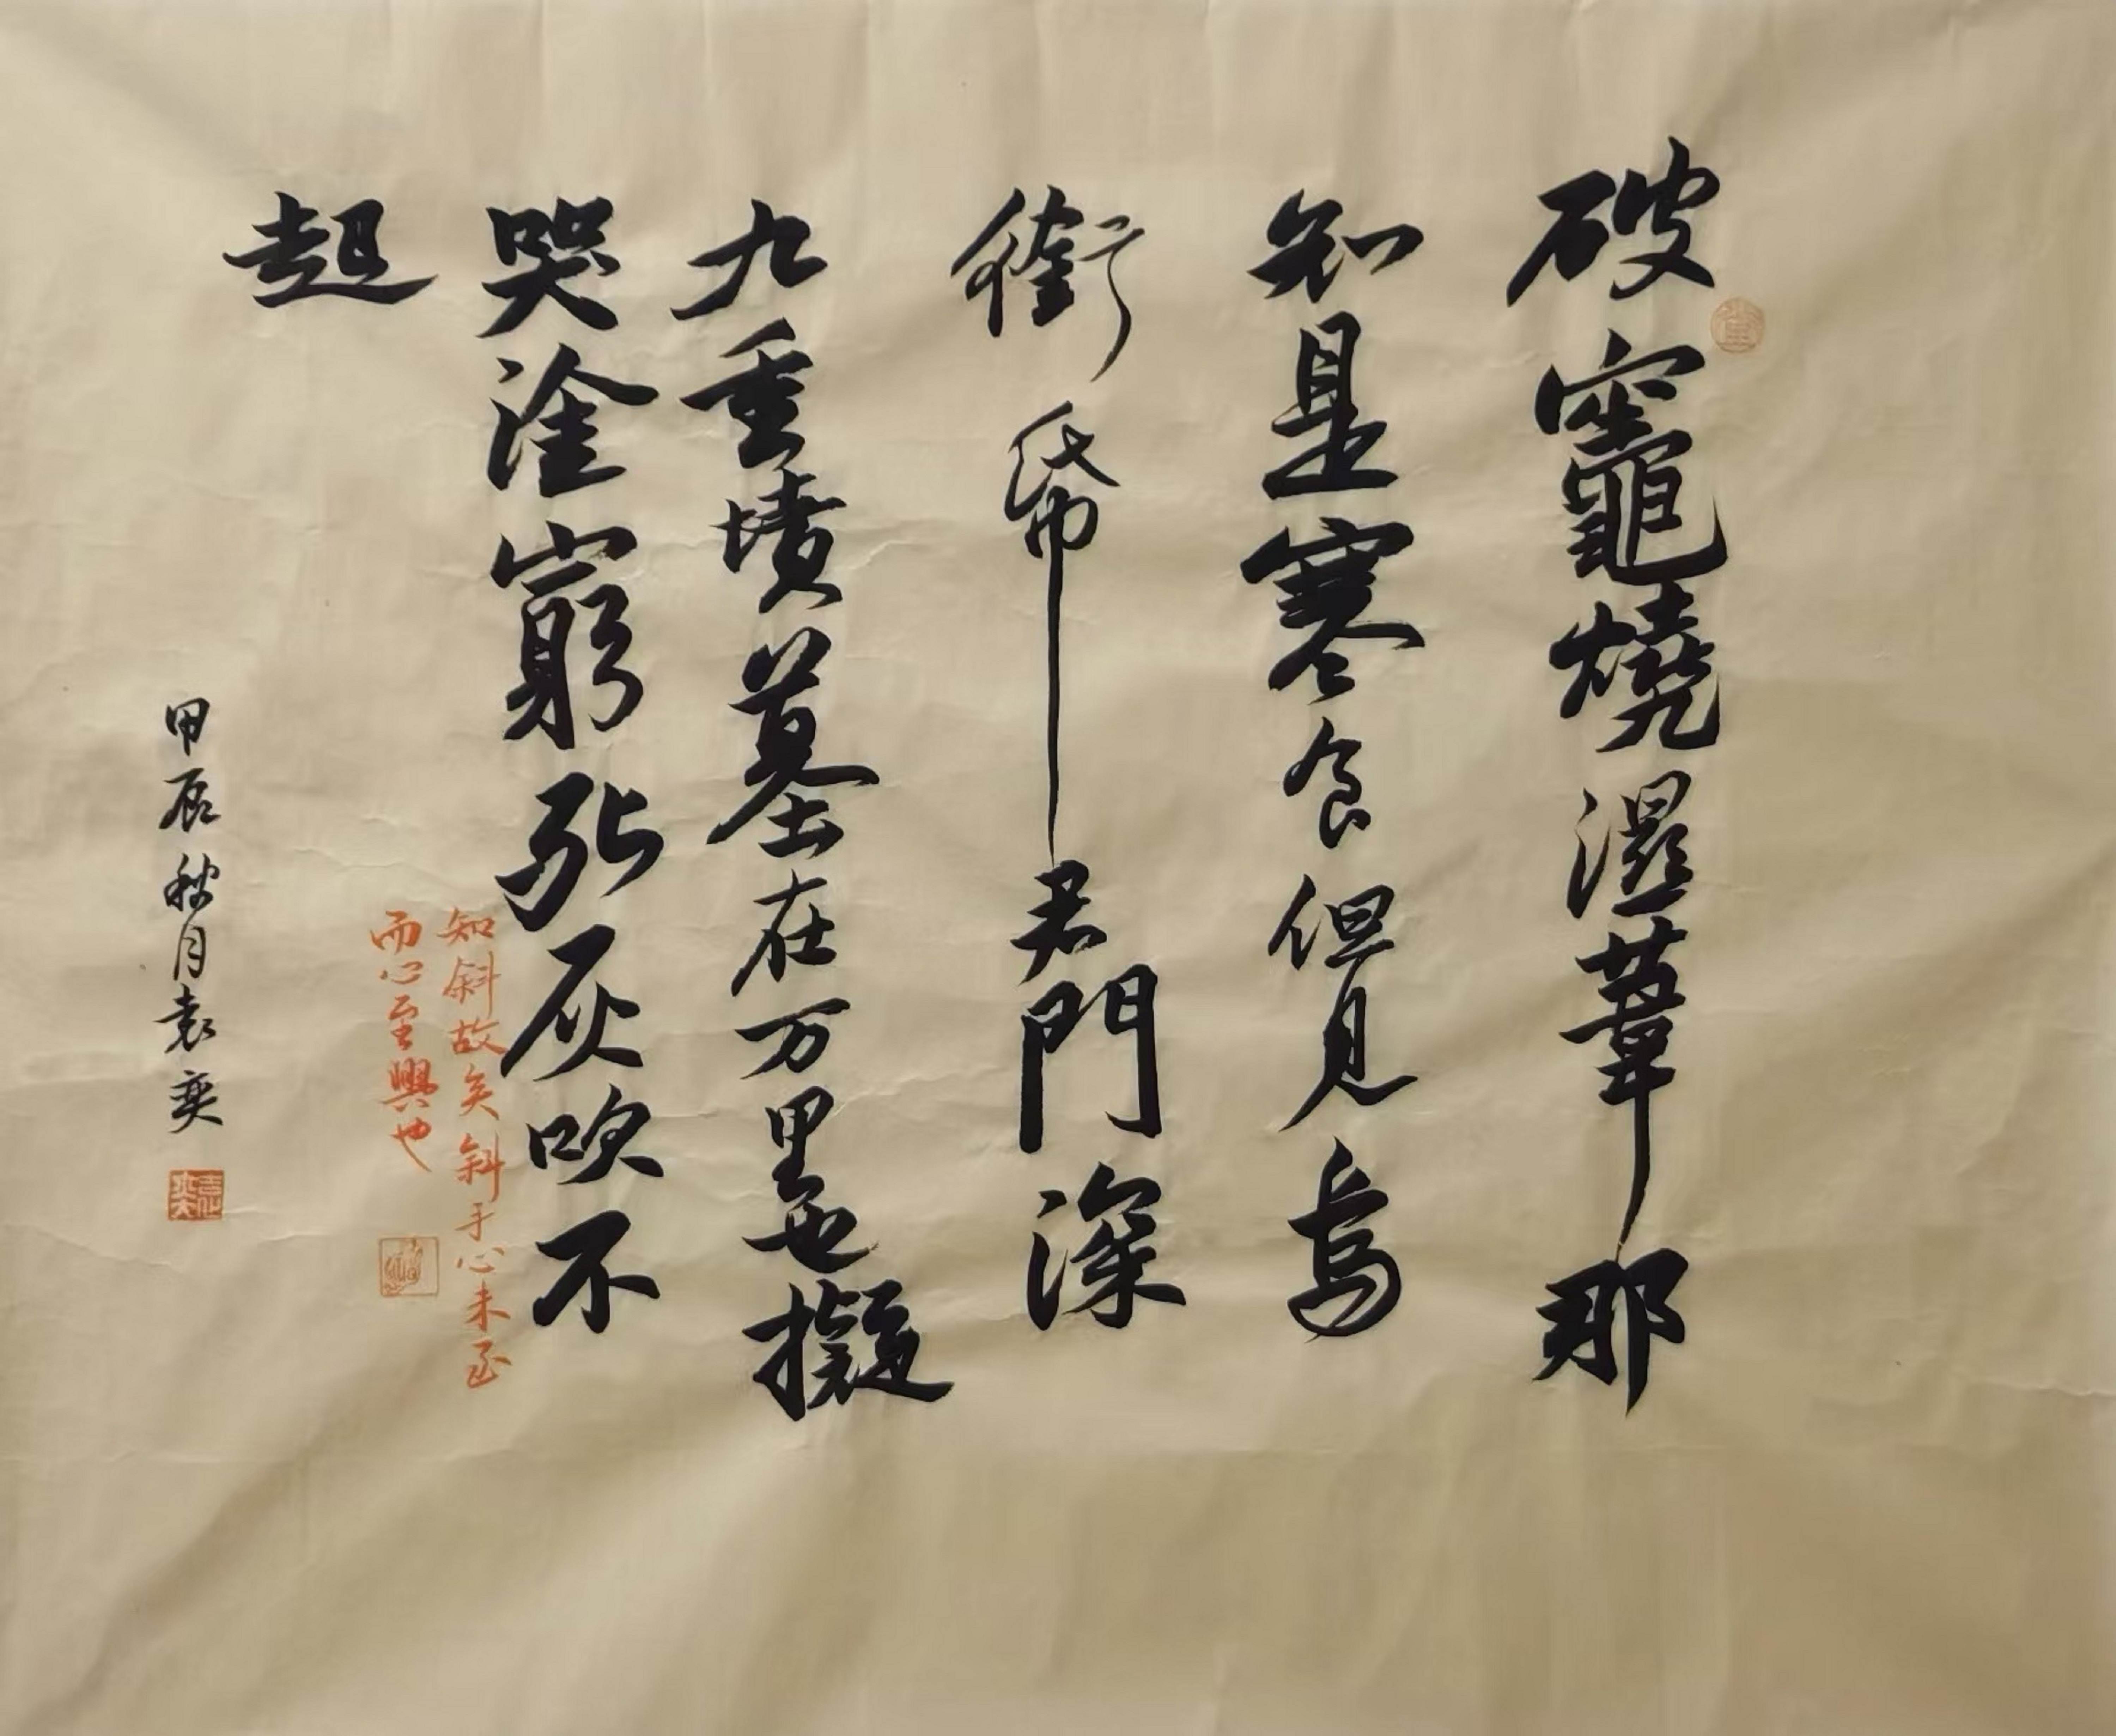 破竈燒濕葦那
知是寒食但見烏
銜帋君門深
九重墳墓在万里也擬
哭塗窮死灰吹不
起
知斜故矣斜于心未至
而心至興也
甲辰秋月袁奕
袁奕